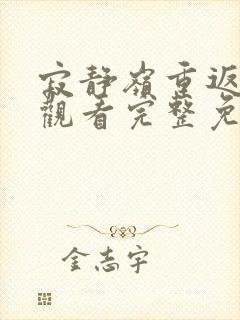 寂靜嶺重返
觀看完整免
金志宇